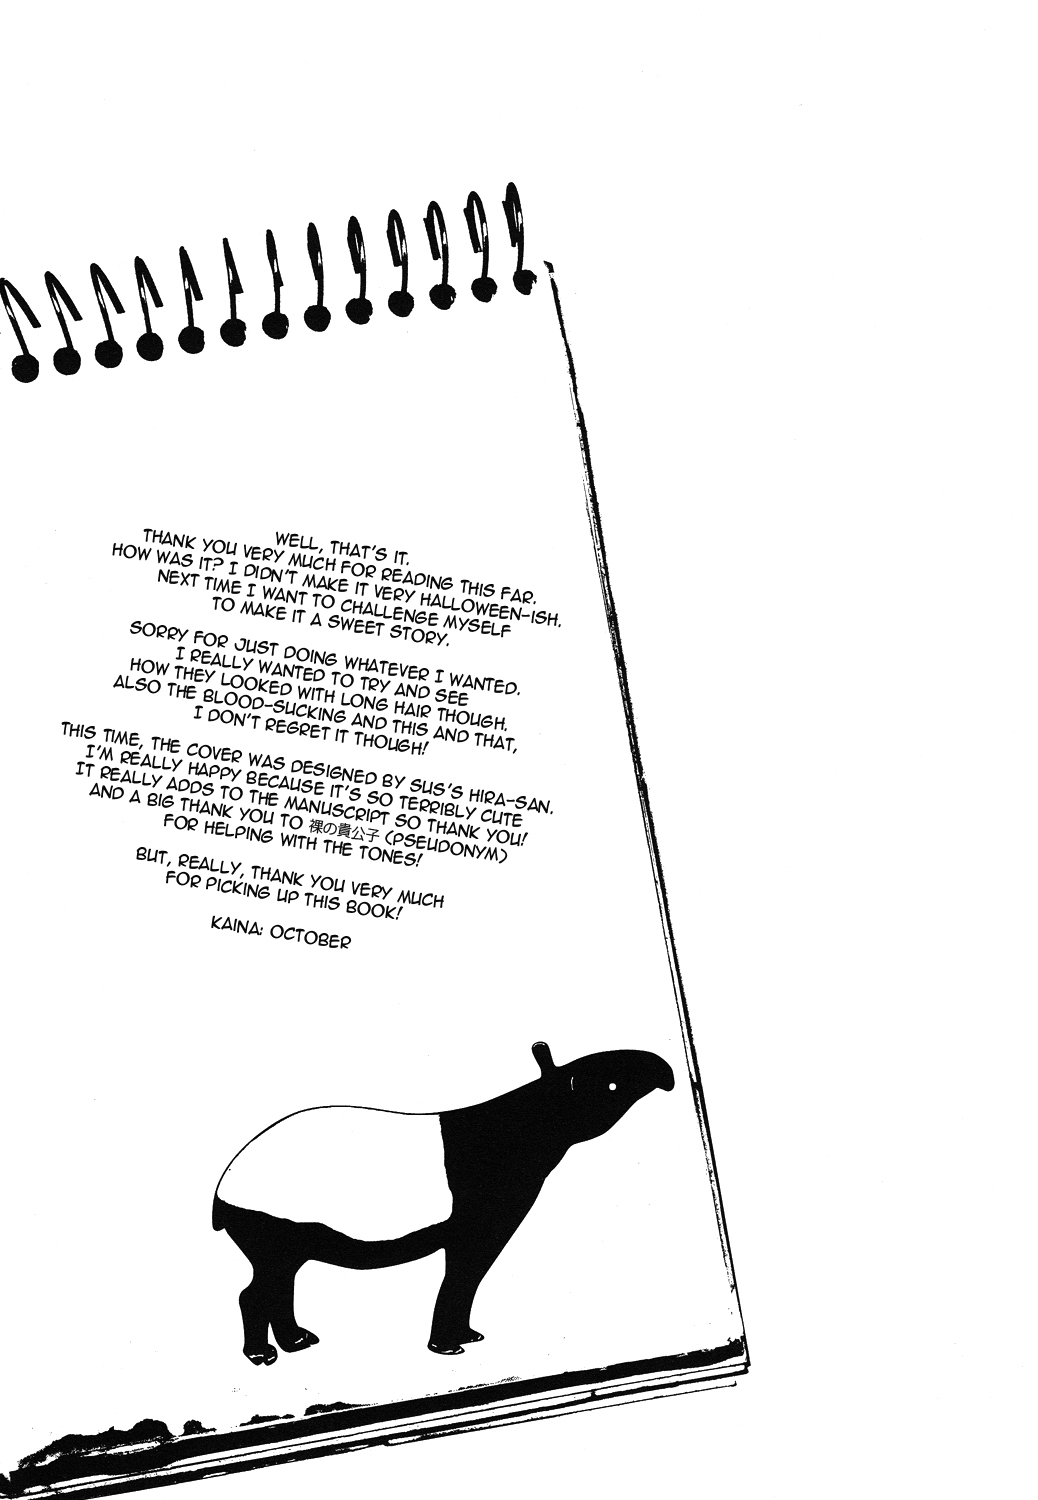 WELL, THAT'S IT.
THANK YOU VERY MUCH FOR READING THIS FAR.
HOW WAS IT? I DIDN'T MAKE IT VERY HALLOWEEN-ISH.
NEXT TIME I WANT TO CHALLENGE MYSELF
TO MAKE IT A SWEET STORY.
SORRY FOR JUST DOING WHATEVER I WANTED.
I REALLY WANTED TO TRY AND SEE
HOW THEY LOOKED WITH LONG HAIR THOUGH.
ALSO THE BLOOD-SUCKING AND THIS AND THAT,
I DON'T REGRET IT THOUGH!
THIS TIME, THE COVER WAS DESIGNED BY SUS'S HIRA-SAN.
I'M REALLY HAPPY BECAUSE IT'S SO TERRIBLY CUTE
IT REALLY ADDS TO THE MANUSCRIPT SO THANK YOU!
AND A BIG THANK YOU TO 裸の貴公子 (PSEUDONYM)
FOR HELPING WITH THE TONES!
BUT, REALLY, THANK YOU VERY MUCH
FOR PICKING UP THIS BOOK!
KAINA: OCTOBER